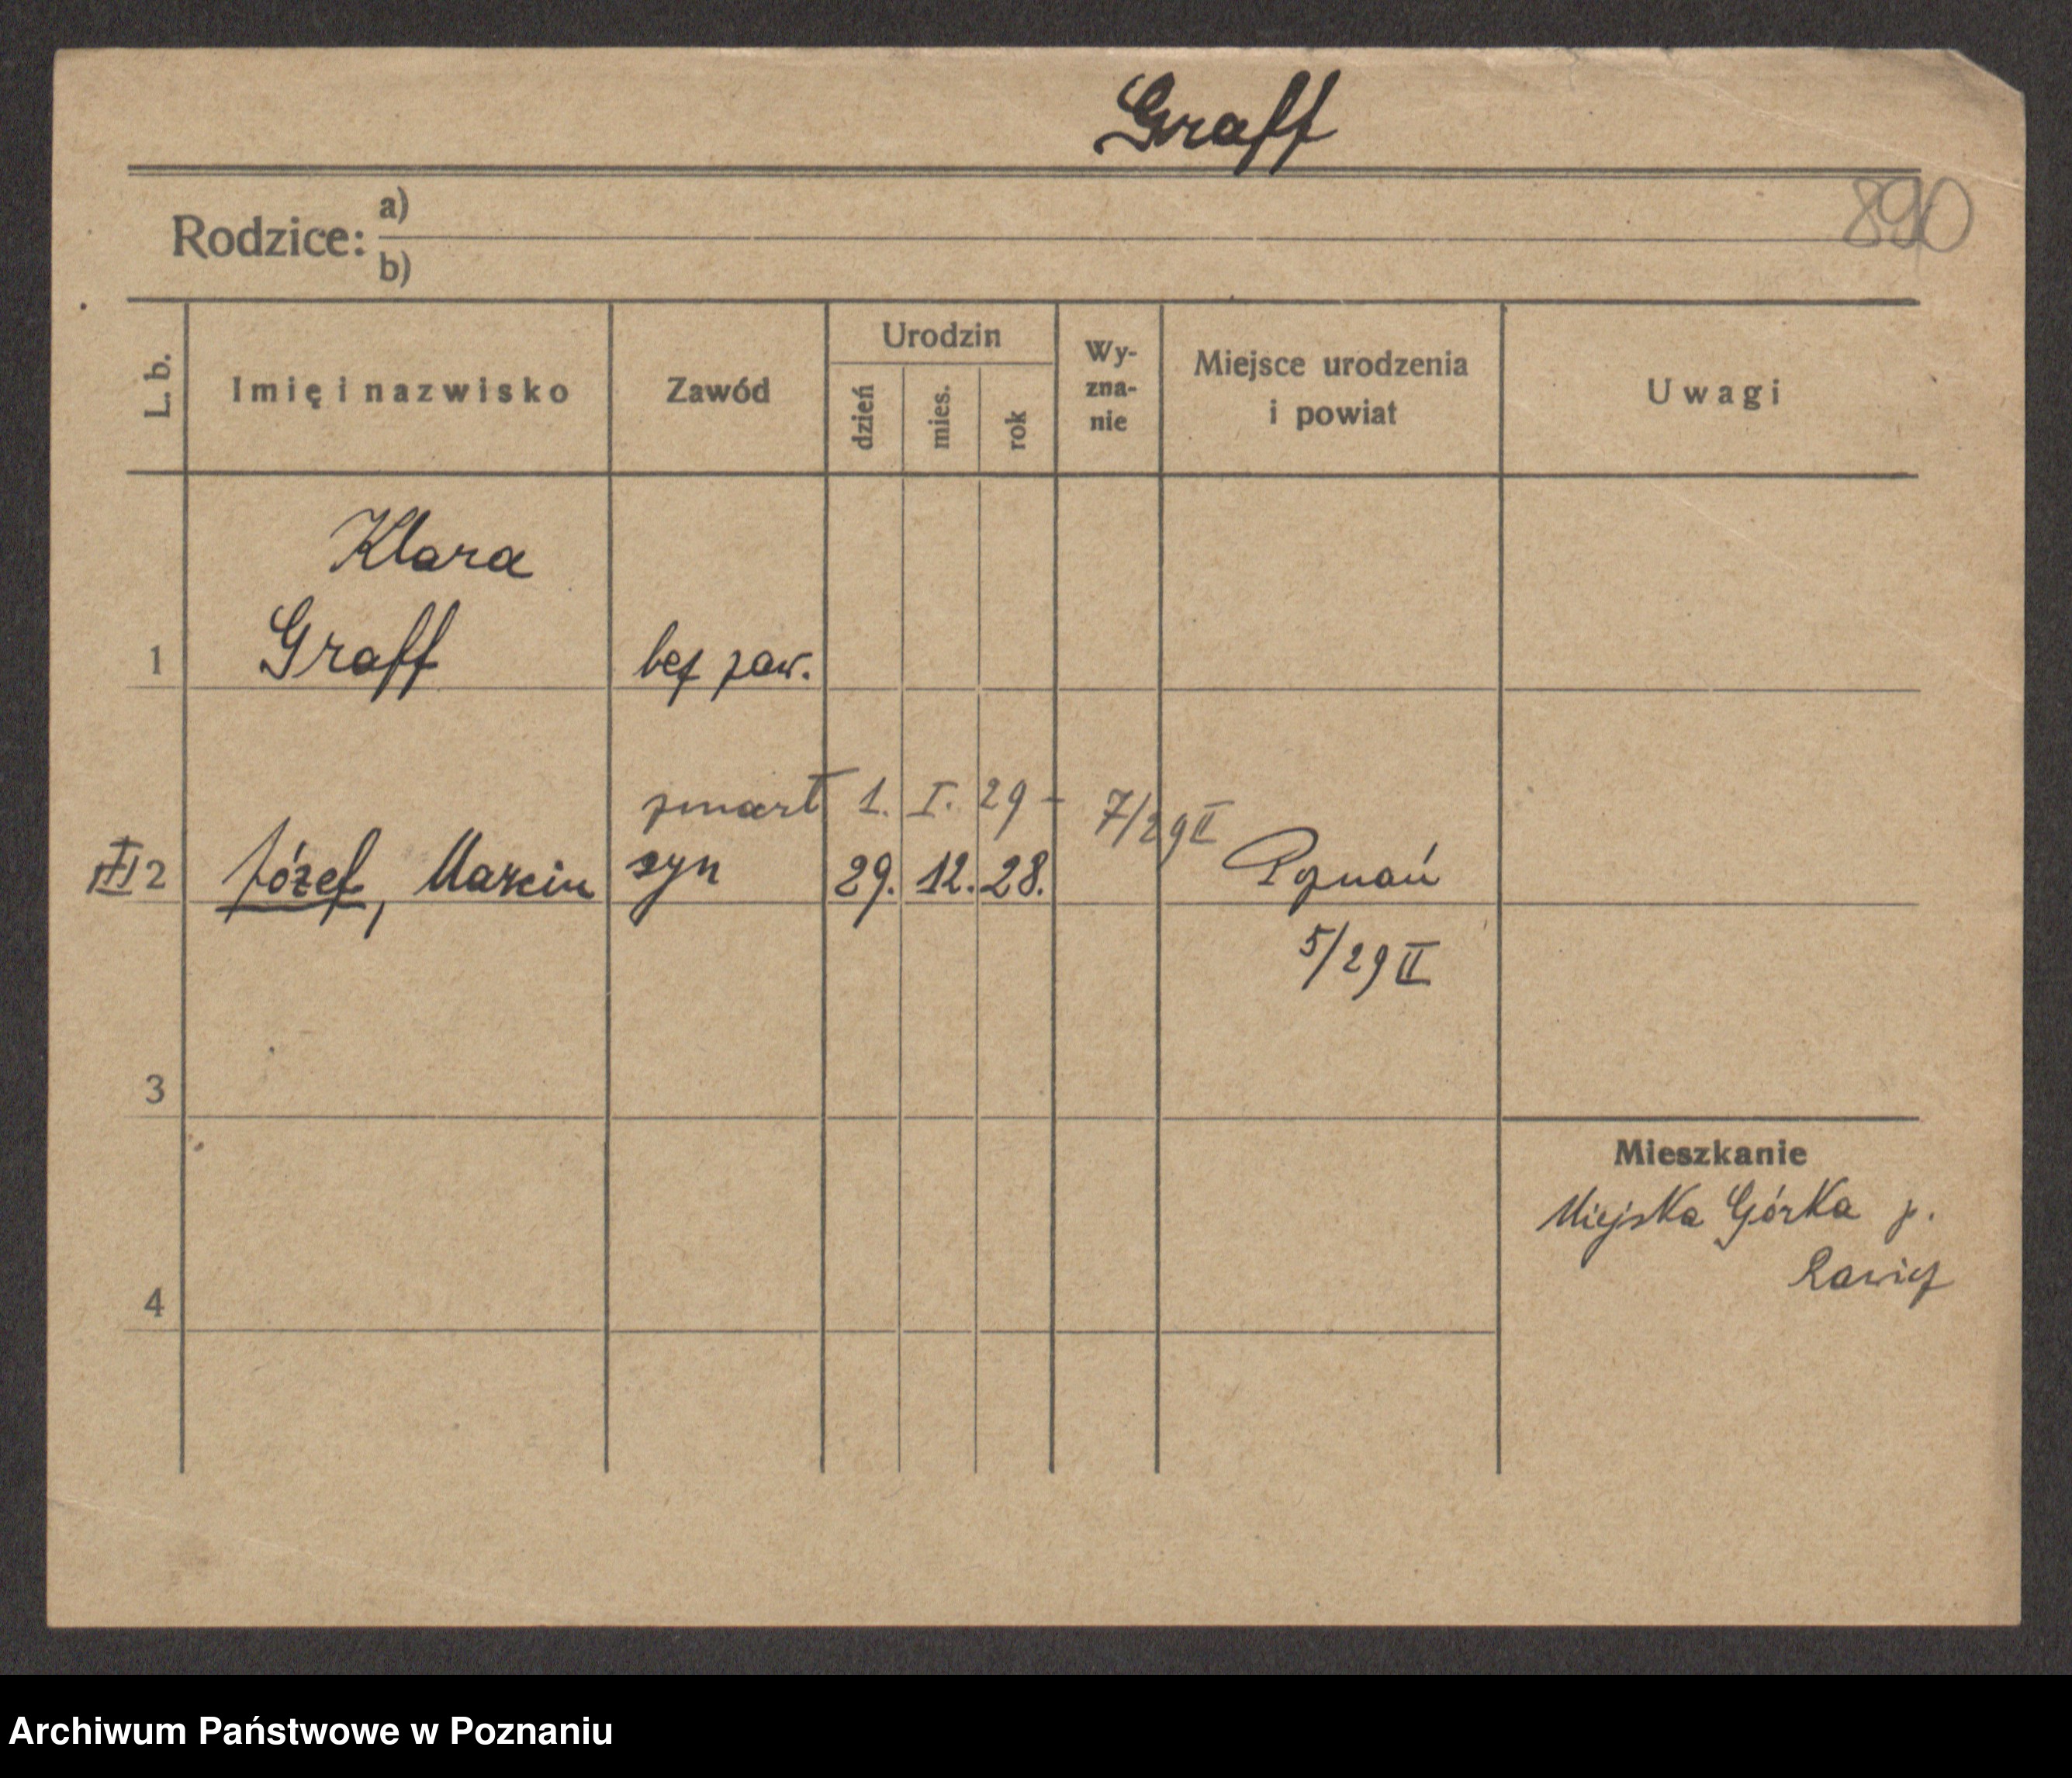 Graff
890
Rodzice: a)
b)
L. b.
Imię i nazwisko
Zawód
Urodzin
dzień
mies.
rok
Wy-
zna-
nie
Miejsce urodzenia
i powiat
Uwagi
Klara
1 Graff bez zaw.
zmarł 1. I. 29 - 7/29 II
2 Józef, Marcin syn 29. 12. 28. Poznań
5/29 II
3
Mieszkanie
Miejska Górka p.
Rawicz
4
Archiwum Państwowe w Poznaniu